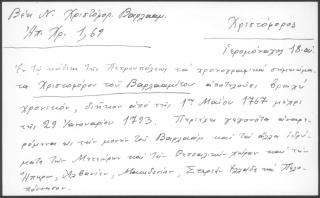 Βέη Ν. Χριστόφορ. Βαρλααμ.
Ἠπ. Χρ. 1, 69
Χριστόφορος
Ἱερομόναχος 18 αἰ.
Ἐν τῷ κώδικι τῆς Πετρουπόλεως τὰ χρονογραφικὰ σημειώμα-
τα Χριστοφόρου τοῦ Βαρλααμίτου ἀποτελοῦσι βραχὺ
χρονικόν, διῆκον ἀπὸ τῆς 1ης Μαΐου 1767 μέχρι
τῆς 29 Ἰανουαρίου 1793. Περιέχει γεγονότα ἀναφε-
ρόμενα εἰς τὴν μονὴν τοῦ Βαρλαάμ καὶ τὰ ἄλλα ἱδρύ-
ματα τῶν Μετεώρων καὶ τὴν Θεσσαλικὴν χώραν καὶ τὴν
Ἤπειρον, Ἀλβανίαν, Μακεδονίαν, Στερεὰν Ἑλλάδα καὶ Πελο-
πόννησον.